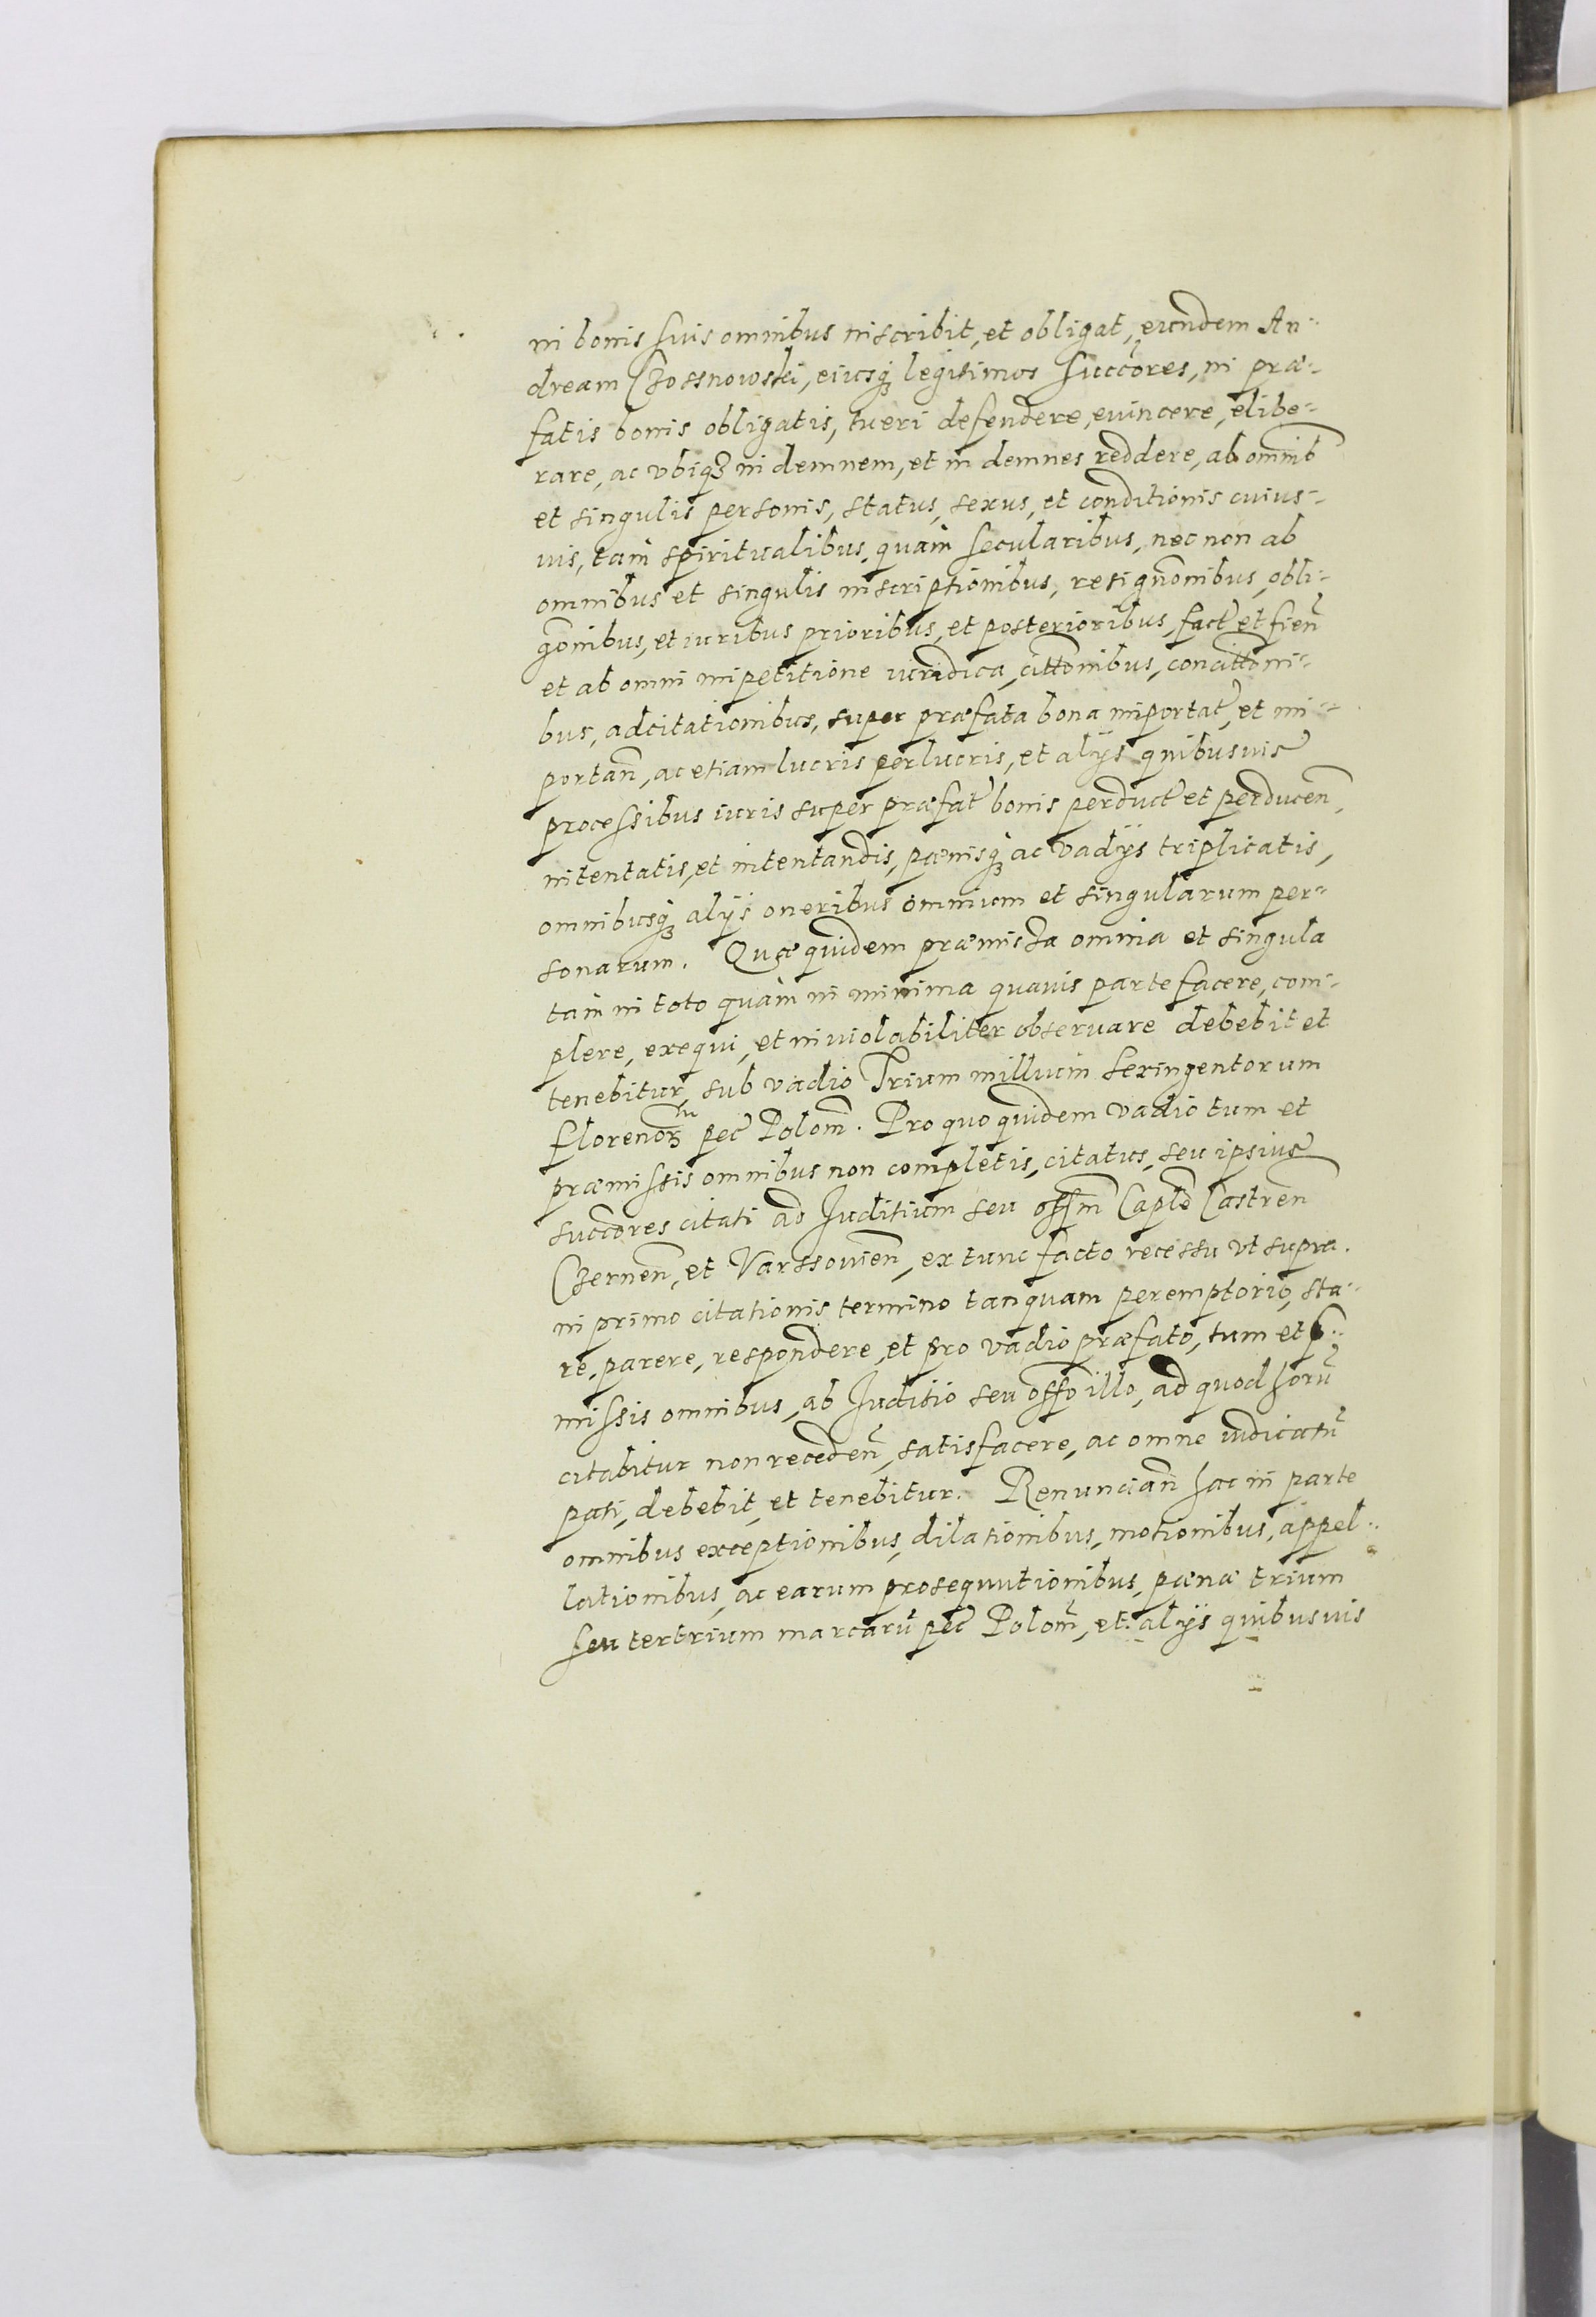 in bonis suis omnibus inscribit, et obligat, eundem An-
dream Czossnowski, eiusq́ꝫ legitimos succ̃ores, in præ-
fatis bonis obligatis, tueri defendere, euincere, elibe-
rare, ac vbiqꝫ in demnem, et in demnes reddere, ab omnib
et singulis personis, status, sexus, et conditionis cuius-
uis, tam spiritualibus, quàm secularibus, nec non ab
omnibus et singulis inscriptionibus, resigñonibus, obli-
gõnibus, et iuribus prioribus, et posterioribus, fact̃ et fień
et ab omni impetitione iuridica, citt̃onibus, concitt̃oni-
bus, adcitationibus, super præfata bona importat̃, et im-
portan̄, ac etiam lucris perlucris, et alÿs quibusuis
processibus iuris super præfat̃ bonis perduct̃ et perducen̄,
intentatis, et intentandis, pænisq́ꝫ ac vadÿs triplicatis,
omnibusq́ꝫ alÿs oneribus omnium et singularum per-
sonarum. Quæ quidem præmissa omnia et singula
tam in toto quàm in minima quauis parte facere, com-
plere, exequi, et inuiolabiliter obseruare debebit et
tenebitur, sub vadio Trium millium sexingentorum
florenoꝝ pec̃ Polom̃. Pro quo quidem vadio tum et
præmissis omnibus non completis, citatus, seu ipsius
succ̃ores citati ad Juditium seu off̃m Capl̃e Castren̄
Czernen̄, et Varssouien̄, ex tunc facto recessu vt supra.
in primo citationis termino tanquam peremptorio, sta-
re, parere, respondere, et pro vadio præfato, tum et p̃-
missis omnibus, ab Juditio seu off̃o illo, ad quod horū
citabitur non receden̄, satisfacere, ac omne iudicatū
pati, debebit, et tenebitur. Renuncian̄ hac in parte
omnibus exceptionibus, dilationibus, motionibus, appel-
lationibus, ac earum prosequutionibus, pænæ trium
seu ter trium marcarū pec̃ Polom̃, et alÿs quibusuis